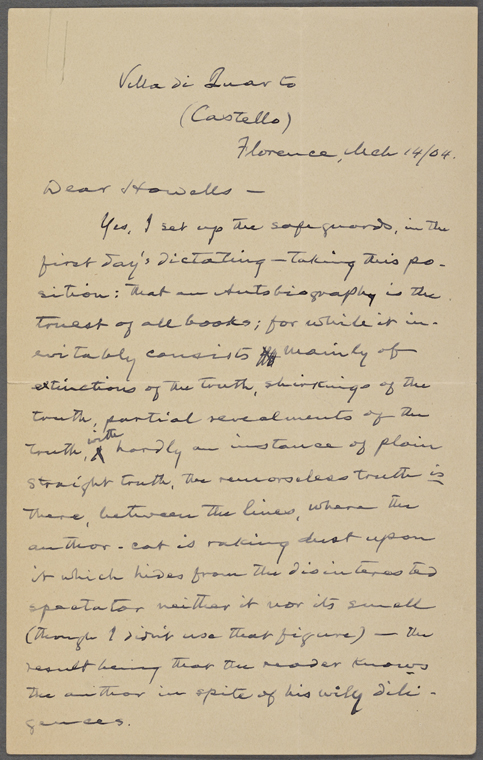 Villa di Quarto
(Castello)
Florence, Mch 14/04.
Dear Howells —
Yes, I set up the safeguards, in the
first day's dictating — taking this po-
sition: that an Autobiography is the
truest of all books; for while it in-
evitably consists mainly of
extinctions of the truth, shirkings of the
truth, partial revealments of the
truth, with hardly an instance of plain
straight truth, the remorseless truth is
there, between the lines, where the
author-cat is raking dust upon
it which hides from the disinterested
spectator neither it nor its smell
(though I didn't use that figure) — the
result being that the reader knows
the author in spite of his wily dili-
gences.